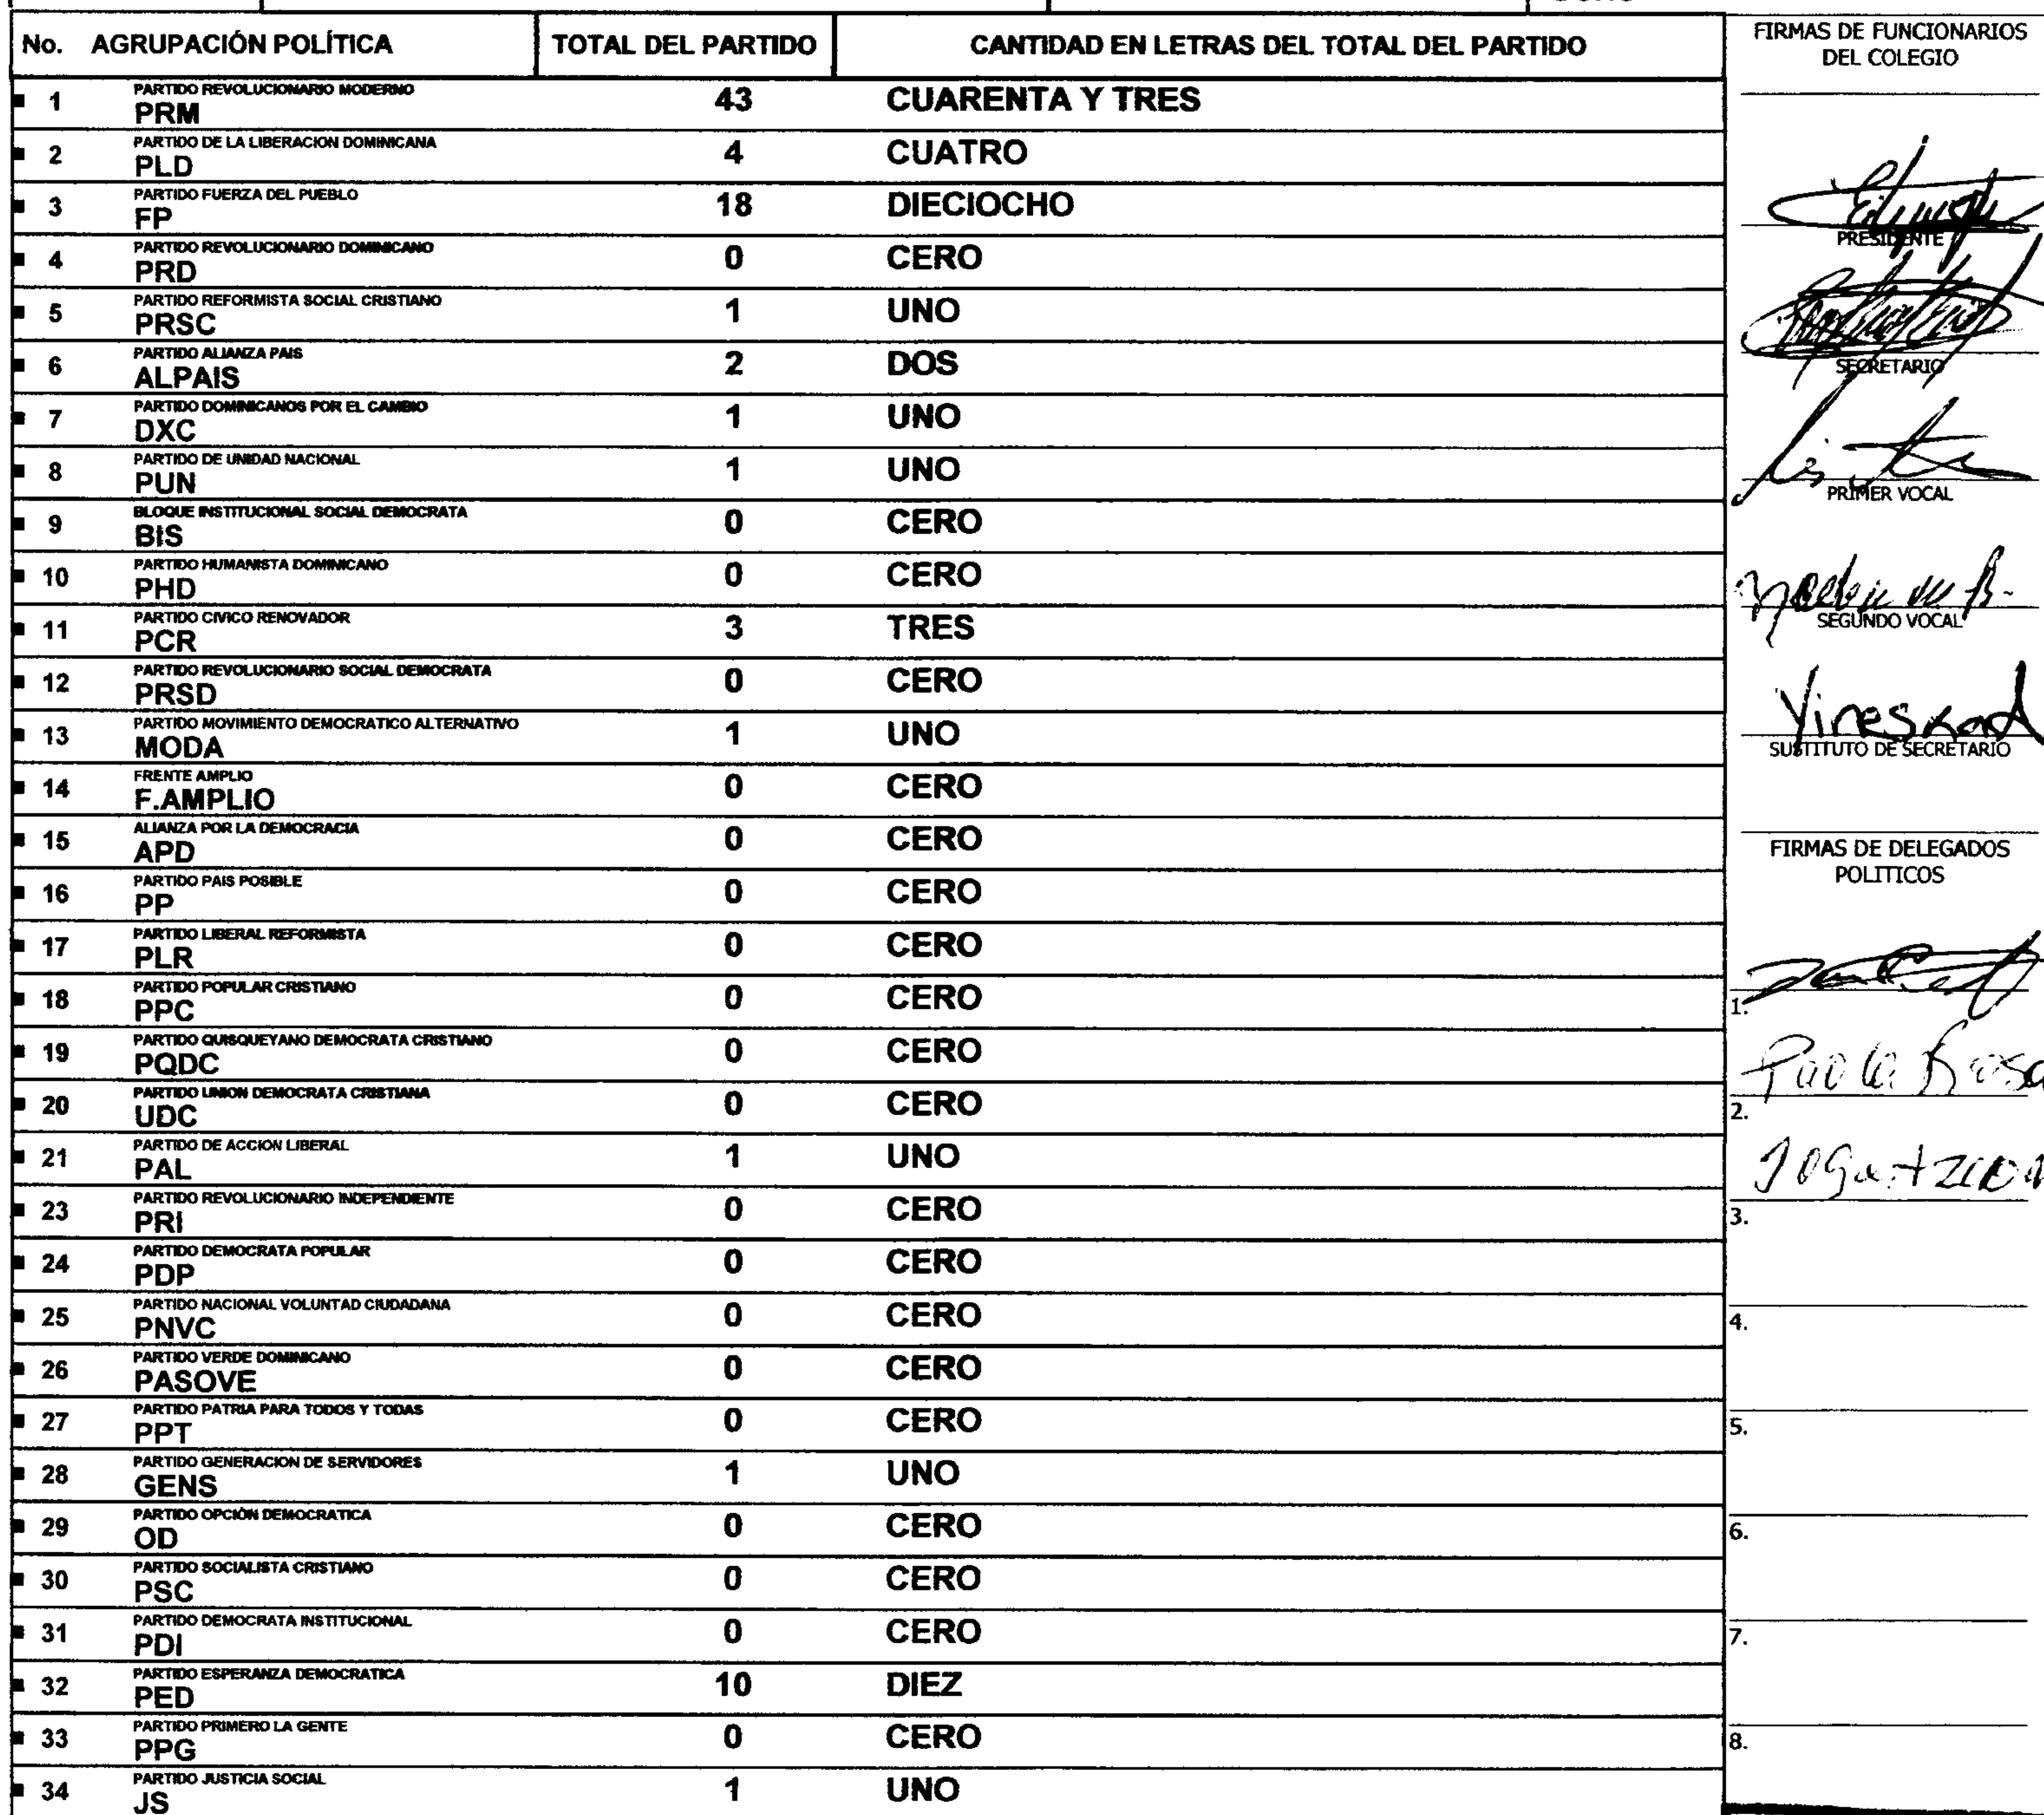 No. AGRUPACIÓN POLÍTICA TOTAL DEL PARTIDO CANTIDAD EN LETRAS DEL TOTAL DEL PARTIDO
PARTIDO REVOLUCIONARIO MODERNO
1 PRM 43 CUARENTA Y TRES
PARTIDO DE LA LIBERACION DOMINICANA
2 PLD 4 CUATRO
PARTIDO FUERZA DEL PUEBLO
3 FP 18 DIECIOCHO
PARTIDO REVOLUCIONARIO DOMINICANO
4 PRD 0 CERO
PARTIDO REFORMISTA SOCIAL CRISTIANO
5 PRSC 1 UNO
PARTIDO ALIANZA PAIS
6 ALPAIS 2 DOS
PARTIDO DOMINICANOS POR EL CAMBIO
7 DXC 1 UNO
PARTIDO DE UNIDAD NACIONAL
8 PUN 1 UNO
BLOQUE INSTITUCIONAL SOCIAL DEMOCRATA
9 BIS 0 CERO
PARTIDO HUMANISTA DOMINICANO
10 PHD 0 CERO
PARTIDO CIVICO RENOVADOR
11 PCR 3 TRES
PARTIDO REVOLUCIONARIO SOCIAL DEMOCRATA
12 PRSD 0 CERO
PARTIDO MOVIMIENTO DEMOCRATICO ALTERNATIVO
13 MODA 1 UNO
FRENTE AMPLIO
14 F.AMPLIO 0 CERO
ALIANZA POR LA DEMOCRACIA
15 APD 0 CERO
PARTIDO PAIS POSIBLE
16 PP 0 CERO
PARTIDO LIBERAL REFORMISTA
17 PLR 0 CERO
PARTIDO POPULAR CRISTIANO
18 PPC 0 CERO
PARTIDO QUISQUEYANO DEMOCRATA CRISTIANO
19 PQDC 0 CERO
PARTIDO UNION DEMOCRATA CRISTIANA
20 UDC 0 CERO
PARTIDO DE ACCION LIBERAL
21 PAL 1 UNO
PARTIDO REVOLUCIONARIO INDEPENDIENTE
23 PRI 0 CERO
PARTIDO DEMOCRATA POPULAR
24 PDP 0 CERO
PARTIDO NACIONAL VOLUNTAD CIUDADANA
25 PNVC 0 CERO
PARTIDO VERDE DOMINICANO
26 PASOVE 0 CERO
PARTIDO PATRIA PARA TODOS Y TODAS
27 PPT 0 CERO
PARTIDO GENERACION DE SERVIDORES
28 GENS 1 UNO
PARTIDO OPCIÓN DEMOCRATICA
29 OD 0 CERO
PARTIDO SOCIALISTA CRISTIANO
30 PSC 0 CERO
PARTIDO DEMOCRATA INSTITUCIONAL
31 PDI 0 CERO
PARTIDO ESPERANZA DEMOCRATICA
32 PED 10 DIEZ
PARTIDO PRIMERO LA GENTE
33 PPG 0 CERO
PARTIDO JUSTICIA SOCIAL
34 JS 1 UNO
FIRMAS DE FUNCIONARIOS
DEL COLEGIO
PRESIDENTE
SECRETARIO
PRIMER VOCAL
SEGUNDO VOCAL
SUSTITUTO DE SECRETARIO
FIRMAS DE DELEGADOS
POLITICOS
1.
Paola Rosa
2.
3.
4.
5.
6.
7.
8.